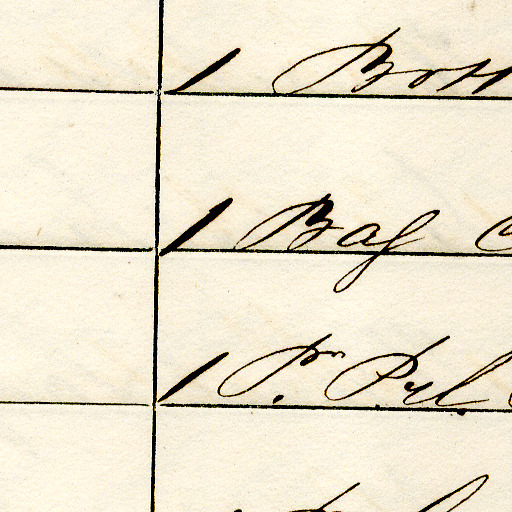 1 Bott
1 Bag
1 Pr. Pil.